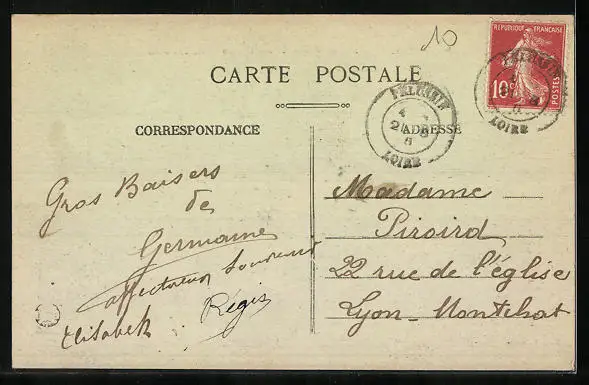 10
REPUBLIQUE FRANÇAISE
10c
POSTES
CARTE POSTALE
PÉLUSSIN
LOIRE
CORRESPONDANCE
ADRESSE
Gros Baisers
de
Germaine
affectueux souvenir
Régis
Elisabeth
Madame
Piroird
22 rue de l'église
Lyon-Montchat